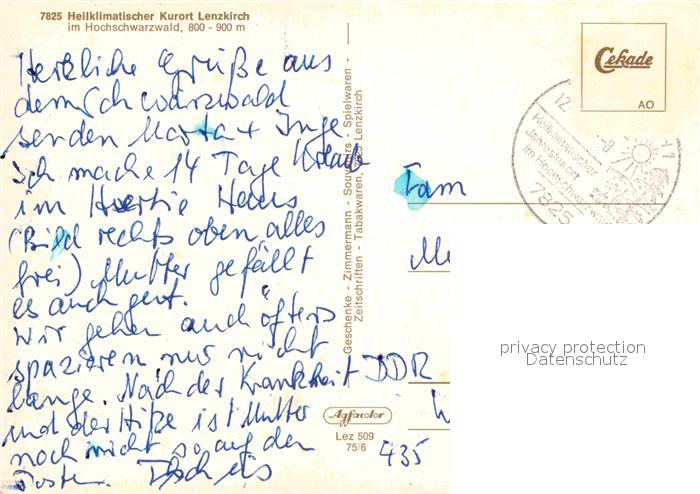 7825 Heilklimatischer Kurort Lenzkirch
im Hochschwarzwald, 800 - 900 m
Herzliche Grüße aus
dem Schwarzwald
senden Marta + Inge
Ich mache 14 Tage Urlaub
im Haus
(Bild rechts oben alles
frei) Mutter gefällt
es auch gut.
Wir gehen auch öfters
spazieren nur nicht
lange. Nach der Krankheit
und der Hitze ist Mutter
noch nicht so auf den
Posten. Tschüs
Geschenke - Zimmermann - Souvenirs - Spielwaren -
Zeitschriften - Tabakwaren, 7825 Lenzkirch
Agfacolor
Lez 509
75/6
Cekade
AO
12
Heilklimatischer
Jahreskurort
im Hochschwarzwald
7825
Fam
DDR
435
privacy protection
Datenschutz